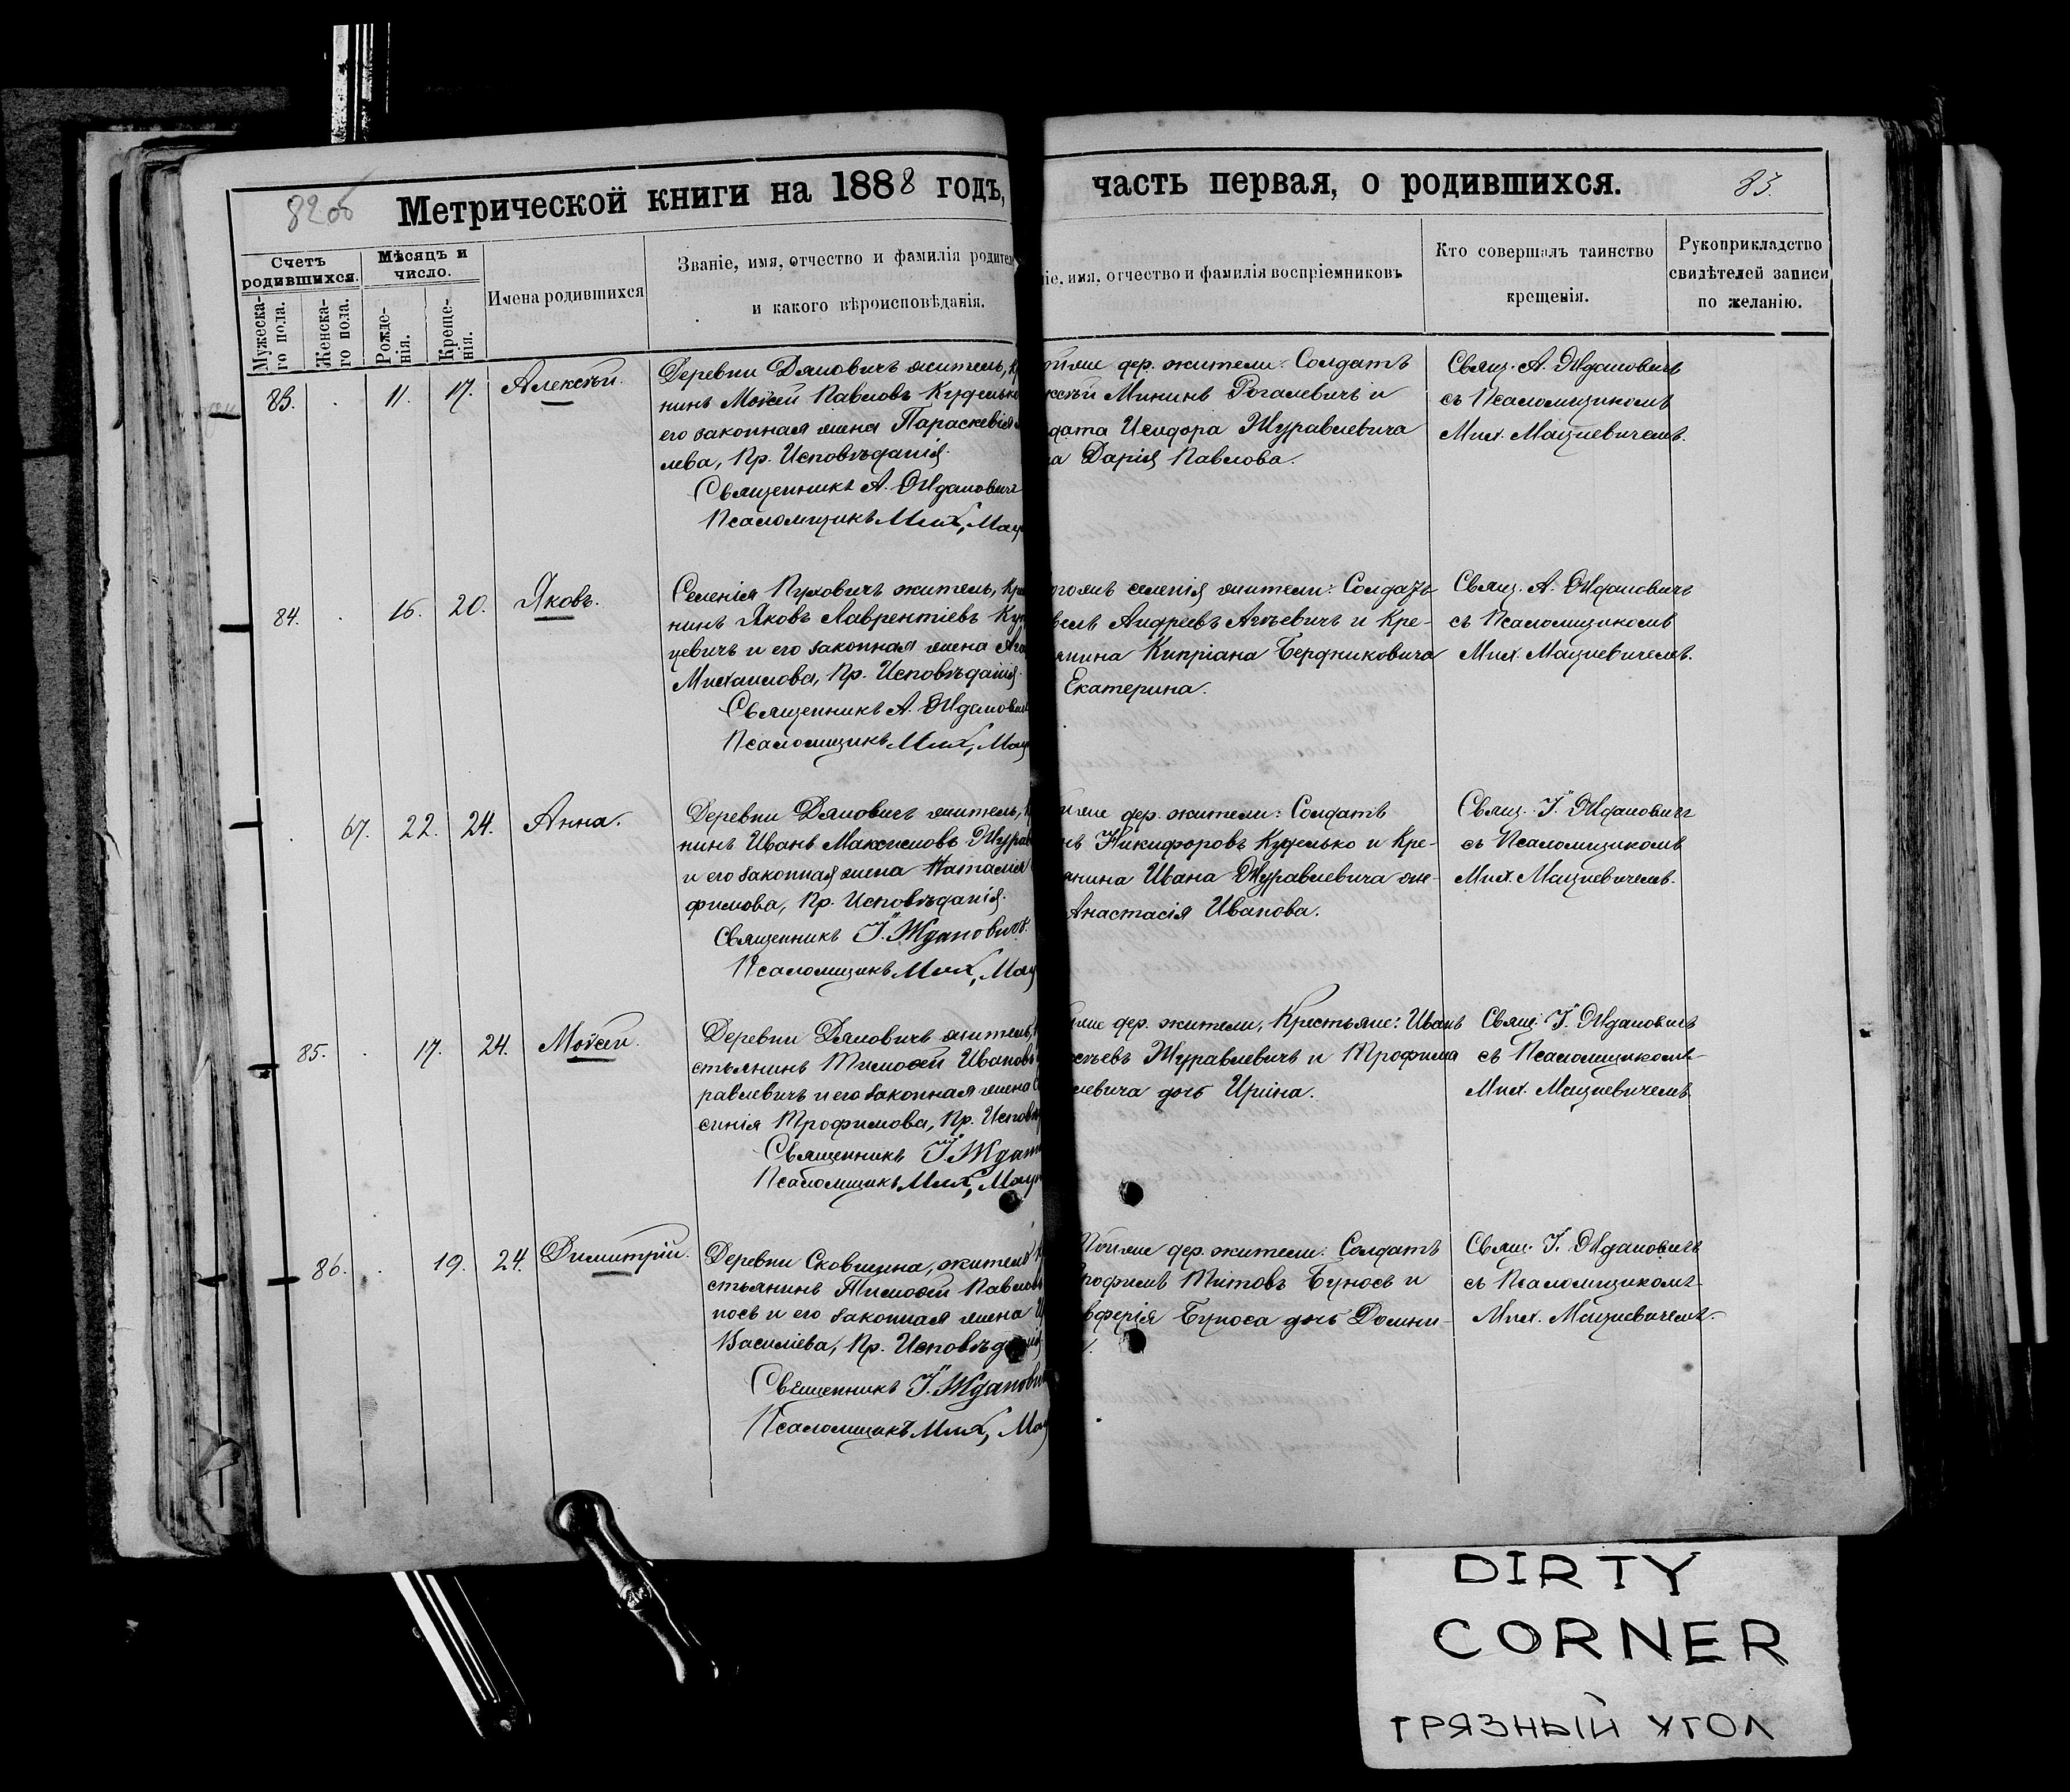 82об
Метрической книги на 1888 годъ,
часть первая, о родившихся.
83.
Счетъ родившихся.
Мѣсяцъ и число.
Мужеска-го пола.
Женска-го пола.
Рожде-нія.
Креще-нія.
Имена родившихся
Званіе, имя, отчество и фамилія родител
и какого вѣроисповѣданія.
іе, имя, отчество и фамилія воспріемниковъ
Кто совершалъ таинство
крещенія.
Рукоприкладство
свидѣтелей записи
по желанію.
83. 11. 17. Алексѣй.
Деревни Дяковичъ житель, кр
нинъ Моѵсей Павловъ Куделько
его законная жена Параскевія
лева, Пр. Исповѣданія.
Священникъ А. Ждановичъ
Псаломщикъ Мих. Мац
дер. жители: Солдатъ
ксѣй Мининъ Рогалевичъ и
дата Исидора Журавлевича
на Дарія Павлова.
Свящ. А. Ждановичъ
съ Псаломщикомъ
Мих. Мацкевичемъ.
84. 16. 20. Яковъ.
Селенія Пуховичъ житель, Кре
нинъ Яковъ Лаврентіевъ Куп
цевичъ и его законная жена Ага
Михаилова, Пр. Исповѣданія.
Священникъ А. Жданович
Псаломщикъ Мих. Мац
селенія жители: Солдатъ
Андреевъ Агѣевичъ и Кре-
янина Кипріана Бердниковича
Екатерина.
Свящ. А. Ждановичъ
съ Псаломщикомъ
Мих. Мацкевичемъ.
67. 22. 24. Анна.
Деревни Дяковичъ житель, к
нинъ Иванъ Максимовъ Журав
и его законная жена Наталія
фимова, Пр. Исповѣданія.
Священникъ І. Ждановичъ.
Псаломщикъ Мих. Мац
дер. жители: Солдатъ
нъ Никифоровъ Куделько и Кре-
янина Ивана Журавлевича же-
Анастасія Иванова.
Свящ. І. Ждановичъ
съ Псаломщикомъ
Мих. Мацкевичемъ.
85. 17. 24. Моѵсей.
Деревни Дяковичъ житель,
стьянинъ Тимоѳей Ивановъ
равлевичъ и его законная жена
синія Трофимова, Пр. Исповѣ
Священникъ І. Ждан
Псаломщикъ Мих. Мац
дер. жители, Крестьяне: Иванъ
ѣевъ Журавлевичъ и Трофима
левича дочь Ирина.
Свящ. І. Ждановичъ
съ Псаломщикомъ
Мих. Мацкевичемъ.
86. 19. 24. Димитрій.
Деревни Сковшина, житель К
стьянинъ Тимоѳей Павлов
носъ и его законная жена
Василіева, Пр. Исповѣданія
Священникъ І. Жданович
Псаломщикъ Мих. Мац
дер. жители: Солдатъ
рофимъ Титовъ Буносъ и
вферія Буноса дочь Домни-
Свящ. І. Ждановичъ
съ Псаломщикомъ
Мих. Мацкевичемъ.
DIRTY
CORNER
ГРЯЗНЫЙ УГОЛ